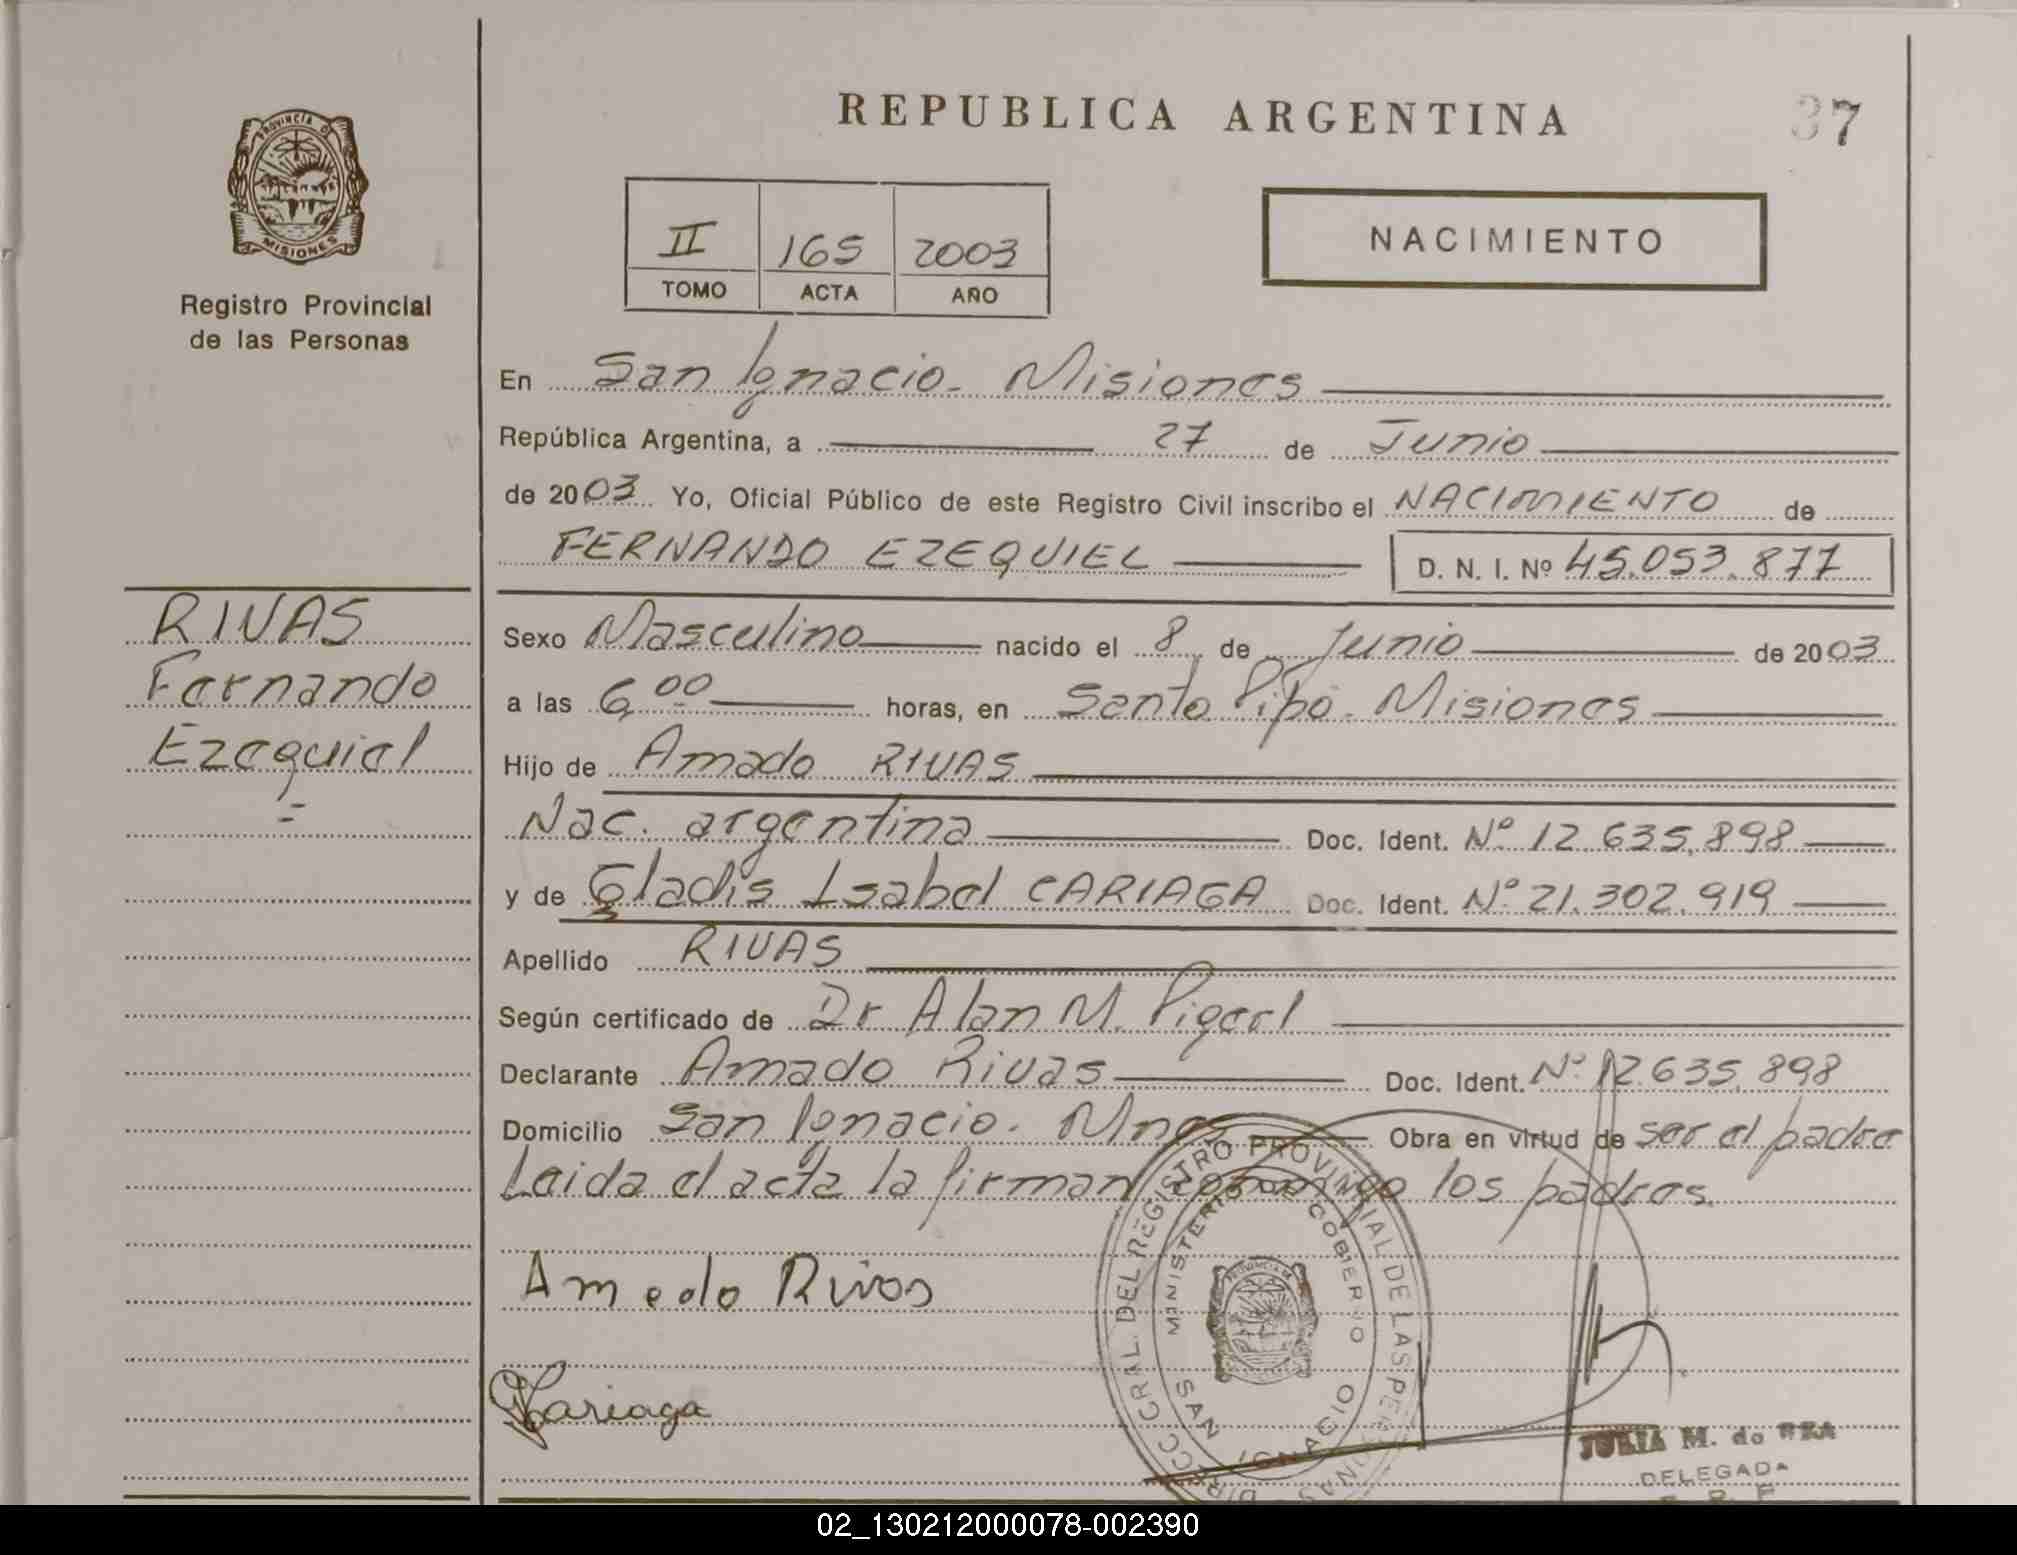 REPUBLICA ARGENTINA
37
PROVINCIA DE
MISIONES
Registro Provincial
de las Personas
II 165 2003
TOMO ACTA AÑO
NACIMIENTO
En San Ignacio - Misiones
República Argentina, a 27 de Junio
de 2003 Yo, Oficial Público de este Registro Civil inscribo el NACIMIENTO de
FERNANDO EZEQUIEL D. N. I. Nº 45.053.877
RIVAS
Fernando
Ezequiel
Sexo Masculino nacido el 8 de Junio de 2003
a las 6,00 horas, en Santo Pipó - Misiones
Hijo de Amado RIVAS
Nac. argentina Doc. Ident. Nº 12.635.898
y de Gladis Isabel CARIAGA Doc. Ident. Nº 21.302.919
Apellido RIVAS
Según certificado de Dr Alan M.
Declarante Amado Rivas Doc. Ident. Nº 12.635.898
Domicilio San Ignacio - Mnes Obra en virtud de ser el padre
Leida el acta la firman conmigo los padres.
Amado Rivas
Cariaga
DIRECC GRAL. DEL REGISTRO PROVINCIAL DE LAS PERSONAS
MINISTERIO DE GOBIERNO
SAN IGNACIO
JULIA M. de
DELEGADA
02_130212000078-002390